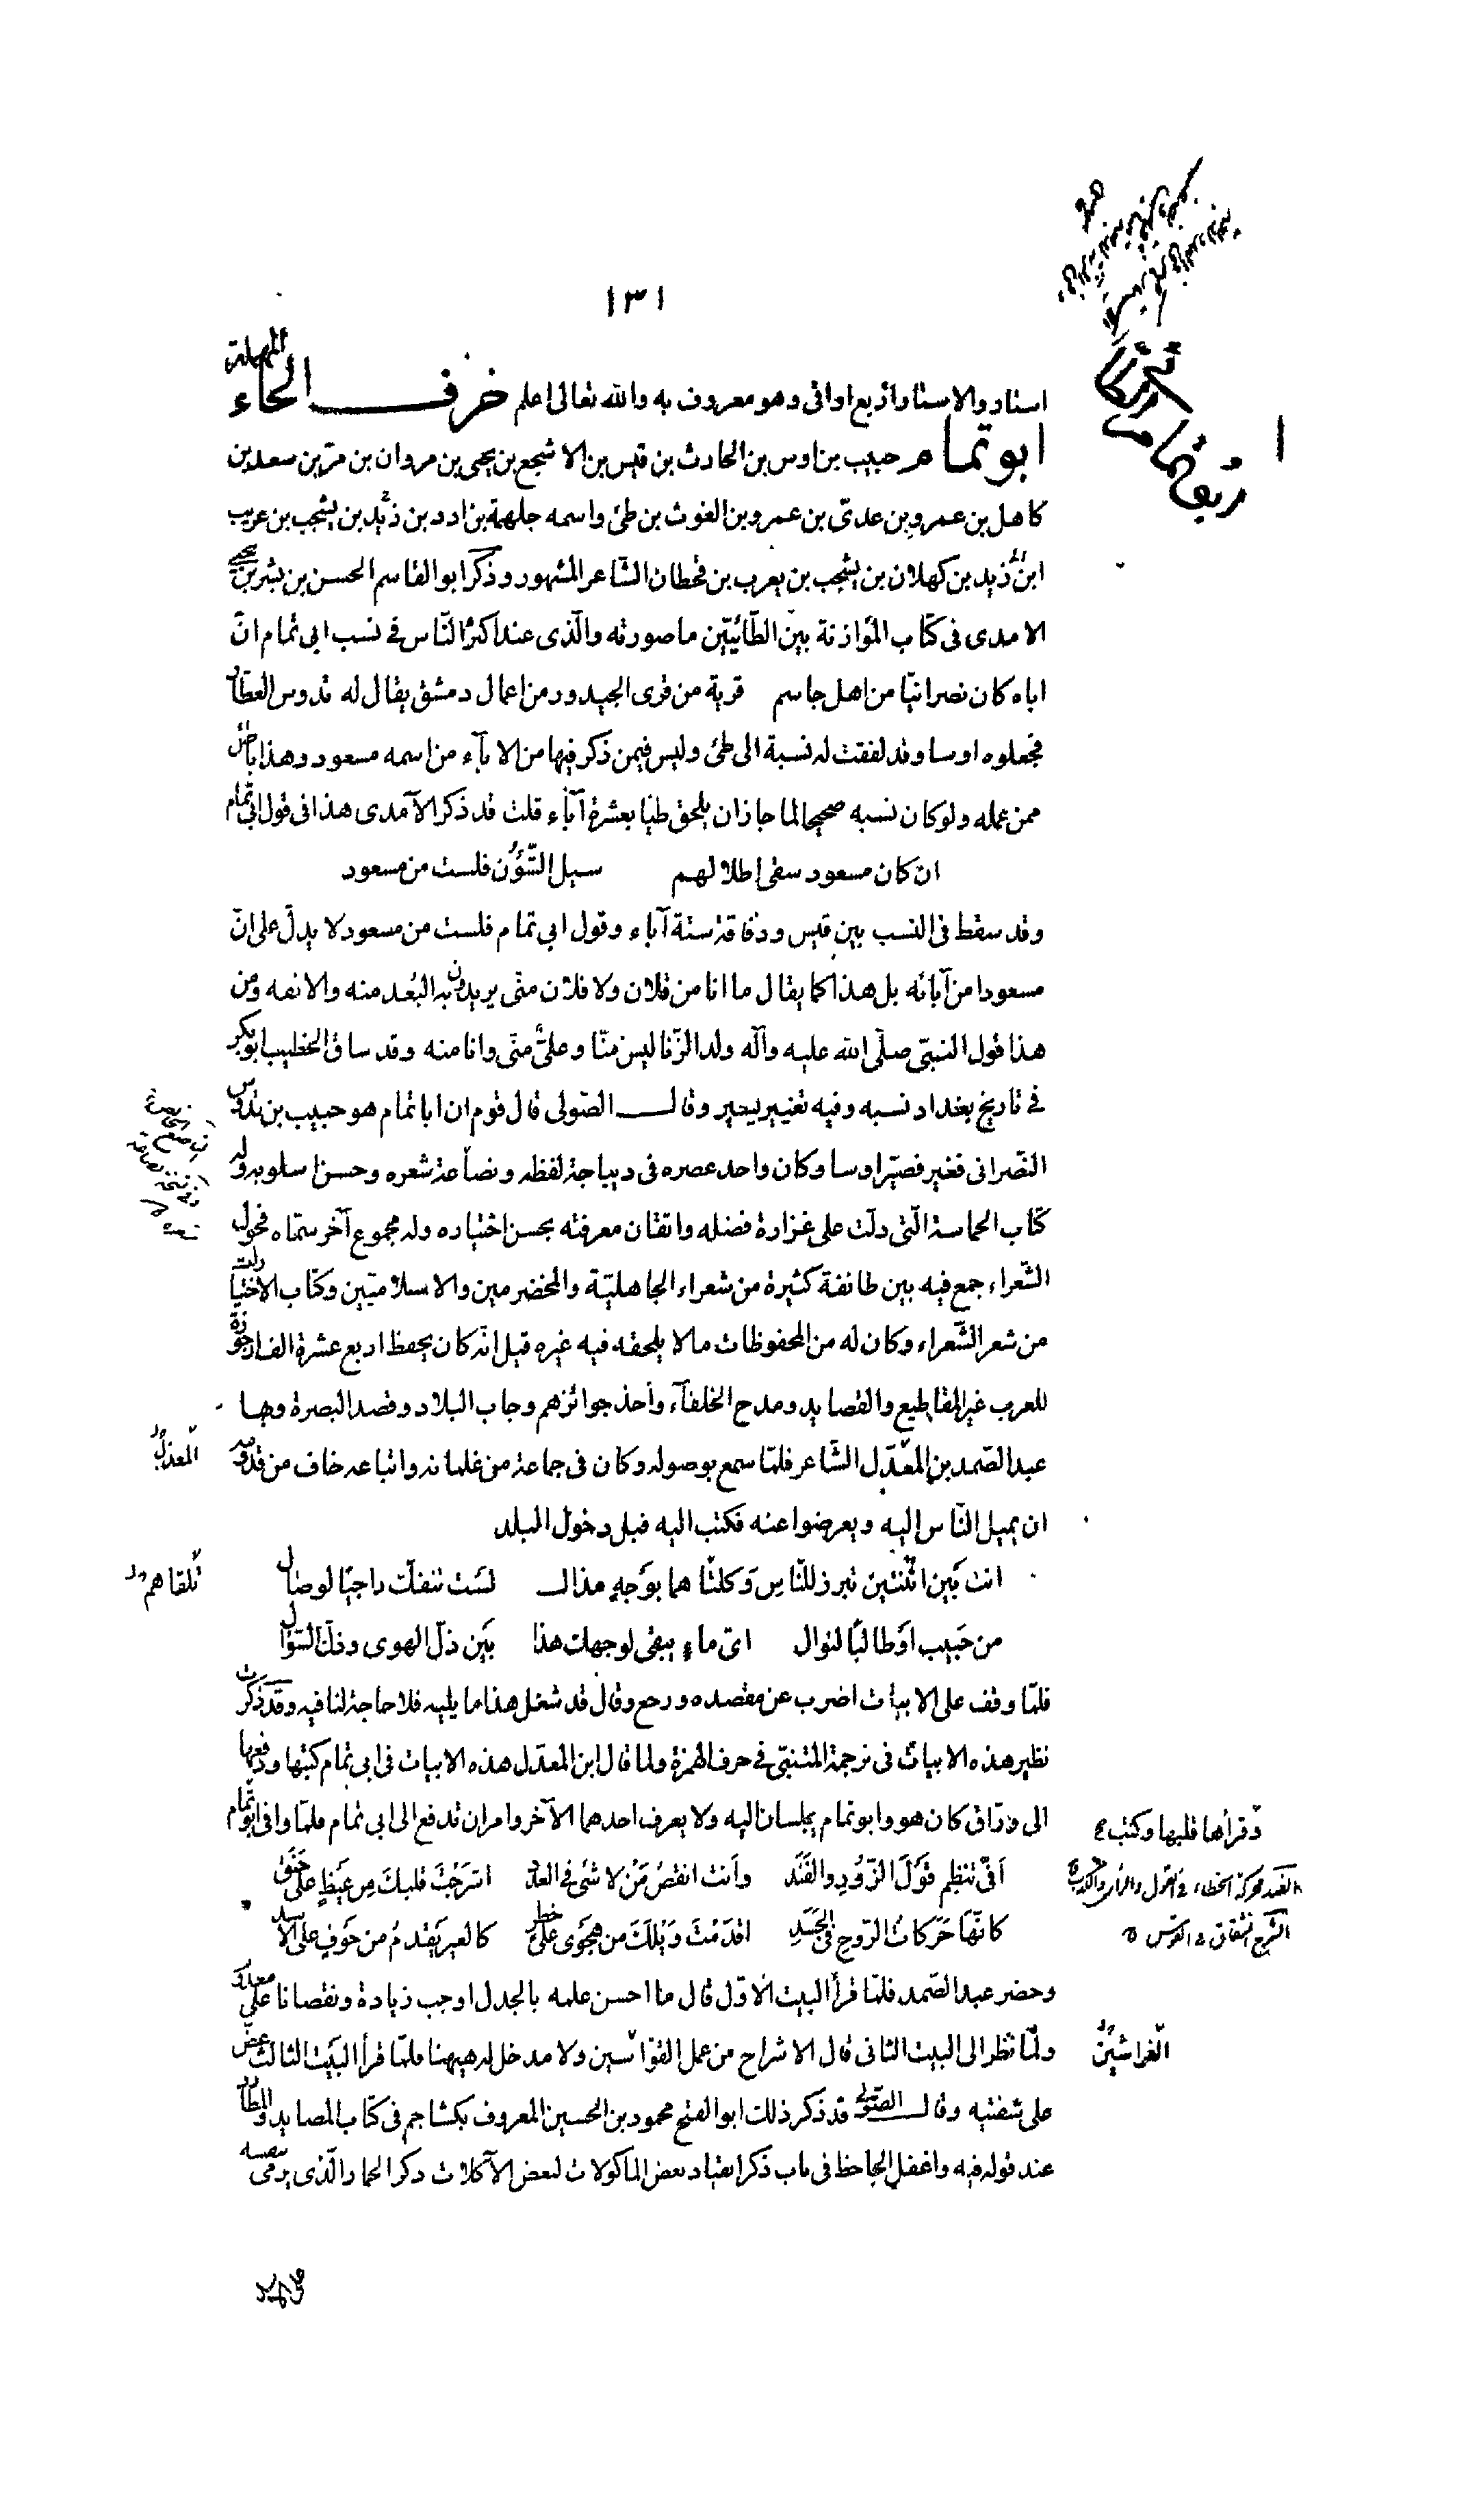 ١٣١
استار والاستار اربع اواقى وهو معروف به والله تعالى اعلم حرف الحاء المهملة
ابو تمام حبيب بن اوس بن الحارث بن قيس بن الاشجع بن يحيى بن مروان بن مر بن سعد بن
كاهل بن عمرو بن عدىّ بن عمرو بن الغوث بن طىّ واسمه جلهمة بن ادد بن زيد بن يشجب بن عريب
ابن زيد بن كهلان بن يشجب بن يعرب بن قحطان الشّاعر المشهور وذكر ابو القاسم الحسن بن بشر بن يحيى
الامدى فى كتاب الموازنة بين الطّائيّين ما صورته والّذى عند اكثر النّاس فى نسب ابى تمام انّ
اباه كان نصرانيّا من اهل جاسم قرية من قرى الجيدور من اعمال دمشق يقال له تدوس العطّار
فجعلوه اوسا وقد لفقت له نسبة الى طىّ وليس فيمن ذكر فيها من الاباء من اسمه مسعود وهذا باطل
ممن عمله ولو كان نسبه صحيحا لما جاز ان يلحق طيّا بعشرة آباء قلت قد ذكر الآمدى هذا فى قول ابى تمام
ان كان مسعود سقى اطلالهم سبل الشّؤن فلست من مسعود
وقد سقط فى النسب بين قيس ودفاقة ستة آباء وقول ابى تمام فلست من مسعود لا يدلّ على انّ
مسعودا من آبائه بل هذا كما يقال ما انا من فلان ولا فلان منّى يريدون به البُعد منه والانفه ومن
هذا قول النبىّ صلّى الله عليه وآله ولد الزّنا ليس منّا وعلىٌّ منّى وانا منه وقد ساق الخطيب ابو بكر
فى تاريخ بغداد نسبه وفيه تغيير يسير وقال الصّولى قال قوم ان ابا تمام هو حبيب بن تدوس
النّصرانى فغير فصيّر اوسا وكان واحد عصره فى ديباجة لفظه ونصاعة شعره وحسن اسلوبه وله
كتاب الحماسة الّتى دلّت على غزارة فضله واتقان معرفته بحسن اختياره وله مجموع آخر سمّاه فحول
الشّعراء جمع فيه بين طائفة كثيرة من شعراء الجاهليّة والمخضرمين والاسلاميّين وكتاب الاختيارات
من شعر الشّعراء وكان له من المحفوظات ما لا يلحقه فيه غيره قيل انّه كان يحفظ اربع عشرة الف ارجوزة
للعرب غير المقاطيع والقصايد ومدح الخلفآء واخذ جوائزهم وجاب البلاد وقصد البصرة وبها
عبد الصّمد بن المعّدّل الشّاعر فلمّا سمع بوصوله وكان فى جماعة من غلمانه واتباعه خاف من قدومه
المعذّل
ان يميل النّاس اليه ويعرضوا عنه فكتب اليه قبل دخول البلد
انت بَين اثنتين تبرز للنّاسِ وَكلتَاهما بوَجهٍ مذال لسَت تنفكّ راجيًا لوصال
تَلقاهم
من حَبيب اوَطالبًا لنوال اىّ ماءٍ يبقى لوجهك هذا بَين ذلّ الهوى وذلّ السّؤال
فلمّا وقف على الابيات اضرب عن مقصده ورجع وقال قد شغل هذا ما يليه فلا حاجة لنا فيه وقد ذكرت
نظير هذه الابيات فى ترجمة المتنبّى فى حرف الهمزة ولما قال ابن المعذّل هذه الابيات فى ابى تمام كتبها ودفعها
الى ورّاق كان هو وابو تمام يجلسان اليه ولا يعرف احدهما الآخر وامر ان تدفع الى ابى تمام فلمّا وافى ابو تمّام
وقرأها قلبها وكتب
اَفىَّ تنظِم قَولَ الزّورِ والفَنَد وأنت انقصُ مَنْ لا شئ فى العدد اشرَجْتَ قلبكَ مِن غَيظٍ على حَنَقٍ
كانّهَا حَرَكاتُ الرّوحِ فى الجَسَدِ اقدَمْتَ وَيْلَكَ من هَجْوى على خطر كالعير يَقدمُ من خَوفٍ على الاسد
وحضر عبد الصّمد فلمّا قرأ البيت الاوّل قال ما احسن علمه بالجدل اوجب زيادة ونقصانا على معدوم
ولمّا نظر الى البيت الثانى قال الاشراح من عمل القوّاسين ولا مدخل له هيهنا فلمّا قرأ البَيت الثالث عضّ
الفراشين
على شفتيه وقال الصّولى قد ذكر ذلك ابو الفتح محمود بن الحسين المعروف بكشاجم فى كتاب المصايد والمطارد
عند قوله فيه واغفل الجاحظ فى باب ذكر انقياد بعض الماكولات لبعض الآكلات ذكر الحمار الّذى يرمى بنفسه